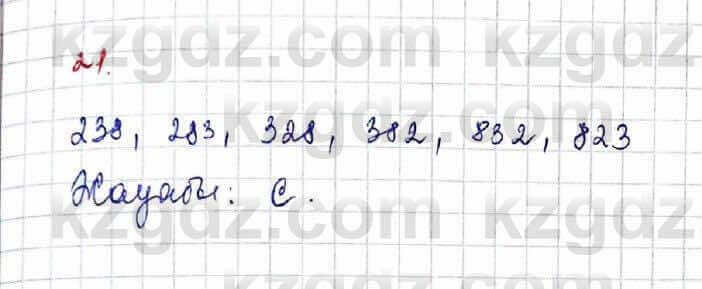 21.
238, 283, 328, 382, 832, 823
Жауабы: С.
kzgdz.com kzgdz.com
kzgdz.com kzgdz.com
kzgdz.com kzgdz.com